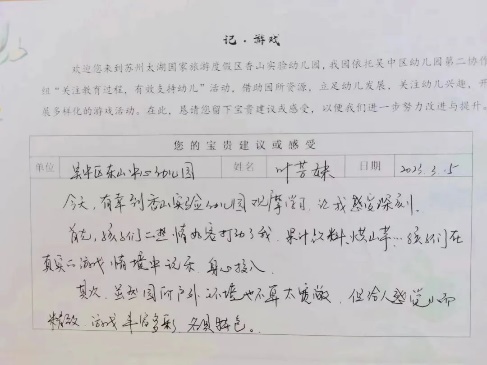 记·游戏
欢迎您来到苏州太湖国家旅游度假区香山实验幼儿园,我园依托吴中区幼儿园第二协作
组“关注教育过程,有效支持幼儿”活动,借助园所资源,立足幼儿发展,关注幼儿兴趣,开
展多样化的游戏活动。在此,恳请您留下宝贵建议或感受,以便我们进一步努力改进与提升。
您的宝贵建议或感受
单位 吴中区东山中心幼儿园 姓名 叶芳妹 日期 2025.3.5
今天,有幸到香山实验幼儿园观摩学习,让我感受深刻。
首先,孩们的热情好客打动了我,果汁饮料、烘山芋…孩们在
真实的游戏情境中玩乐,身心投入。
其次,虽然园所户外环境也不算太宽敞,但给人感觉小而
精致,游戏丰富多彩,各具特色。